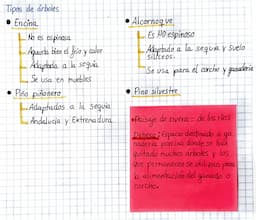 Tipos de árboles
• Encina
No es espinosa
Aguanta bien el frío y calor
Adaptada a la sequía
Se usa en muebles
• Pino piñonero
Adaptados a la sequía
Andalucía y Extremadura
• Alcornoque
Es NO espinoso
Adaptado a la sequía y suelo
silíceos.
Se usa para el corcho y ganadería
• Pino silvestre
Paisaje de rivera: de los ríos
Dehesa: Espacio destinado a ga
nadería porcina donde se han
quitado muchos árboles y los
que permanecen se utilizan para
la alimentación del ganado o
corcho.